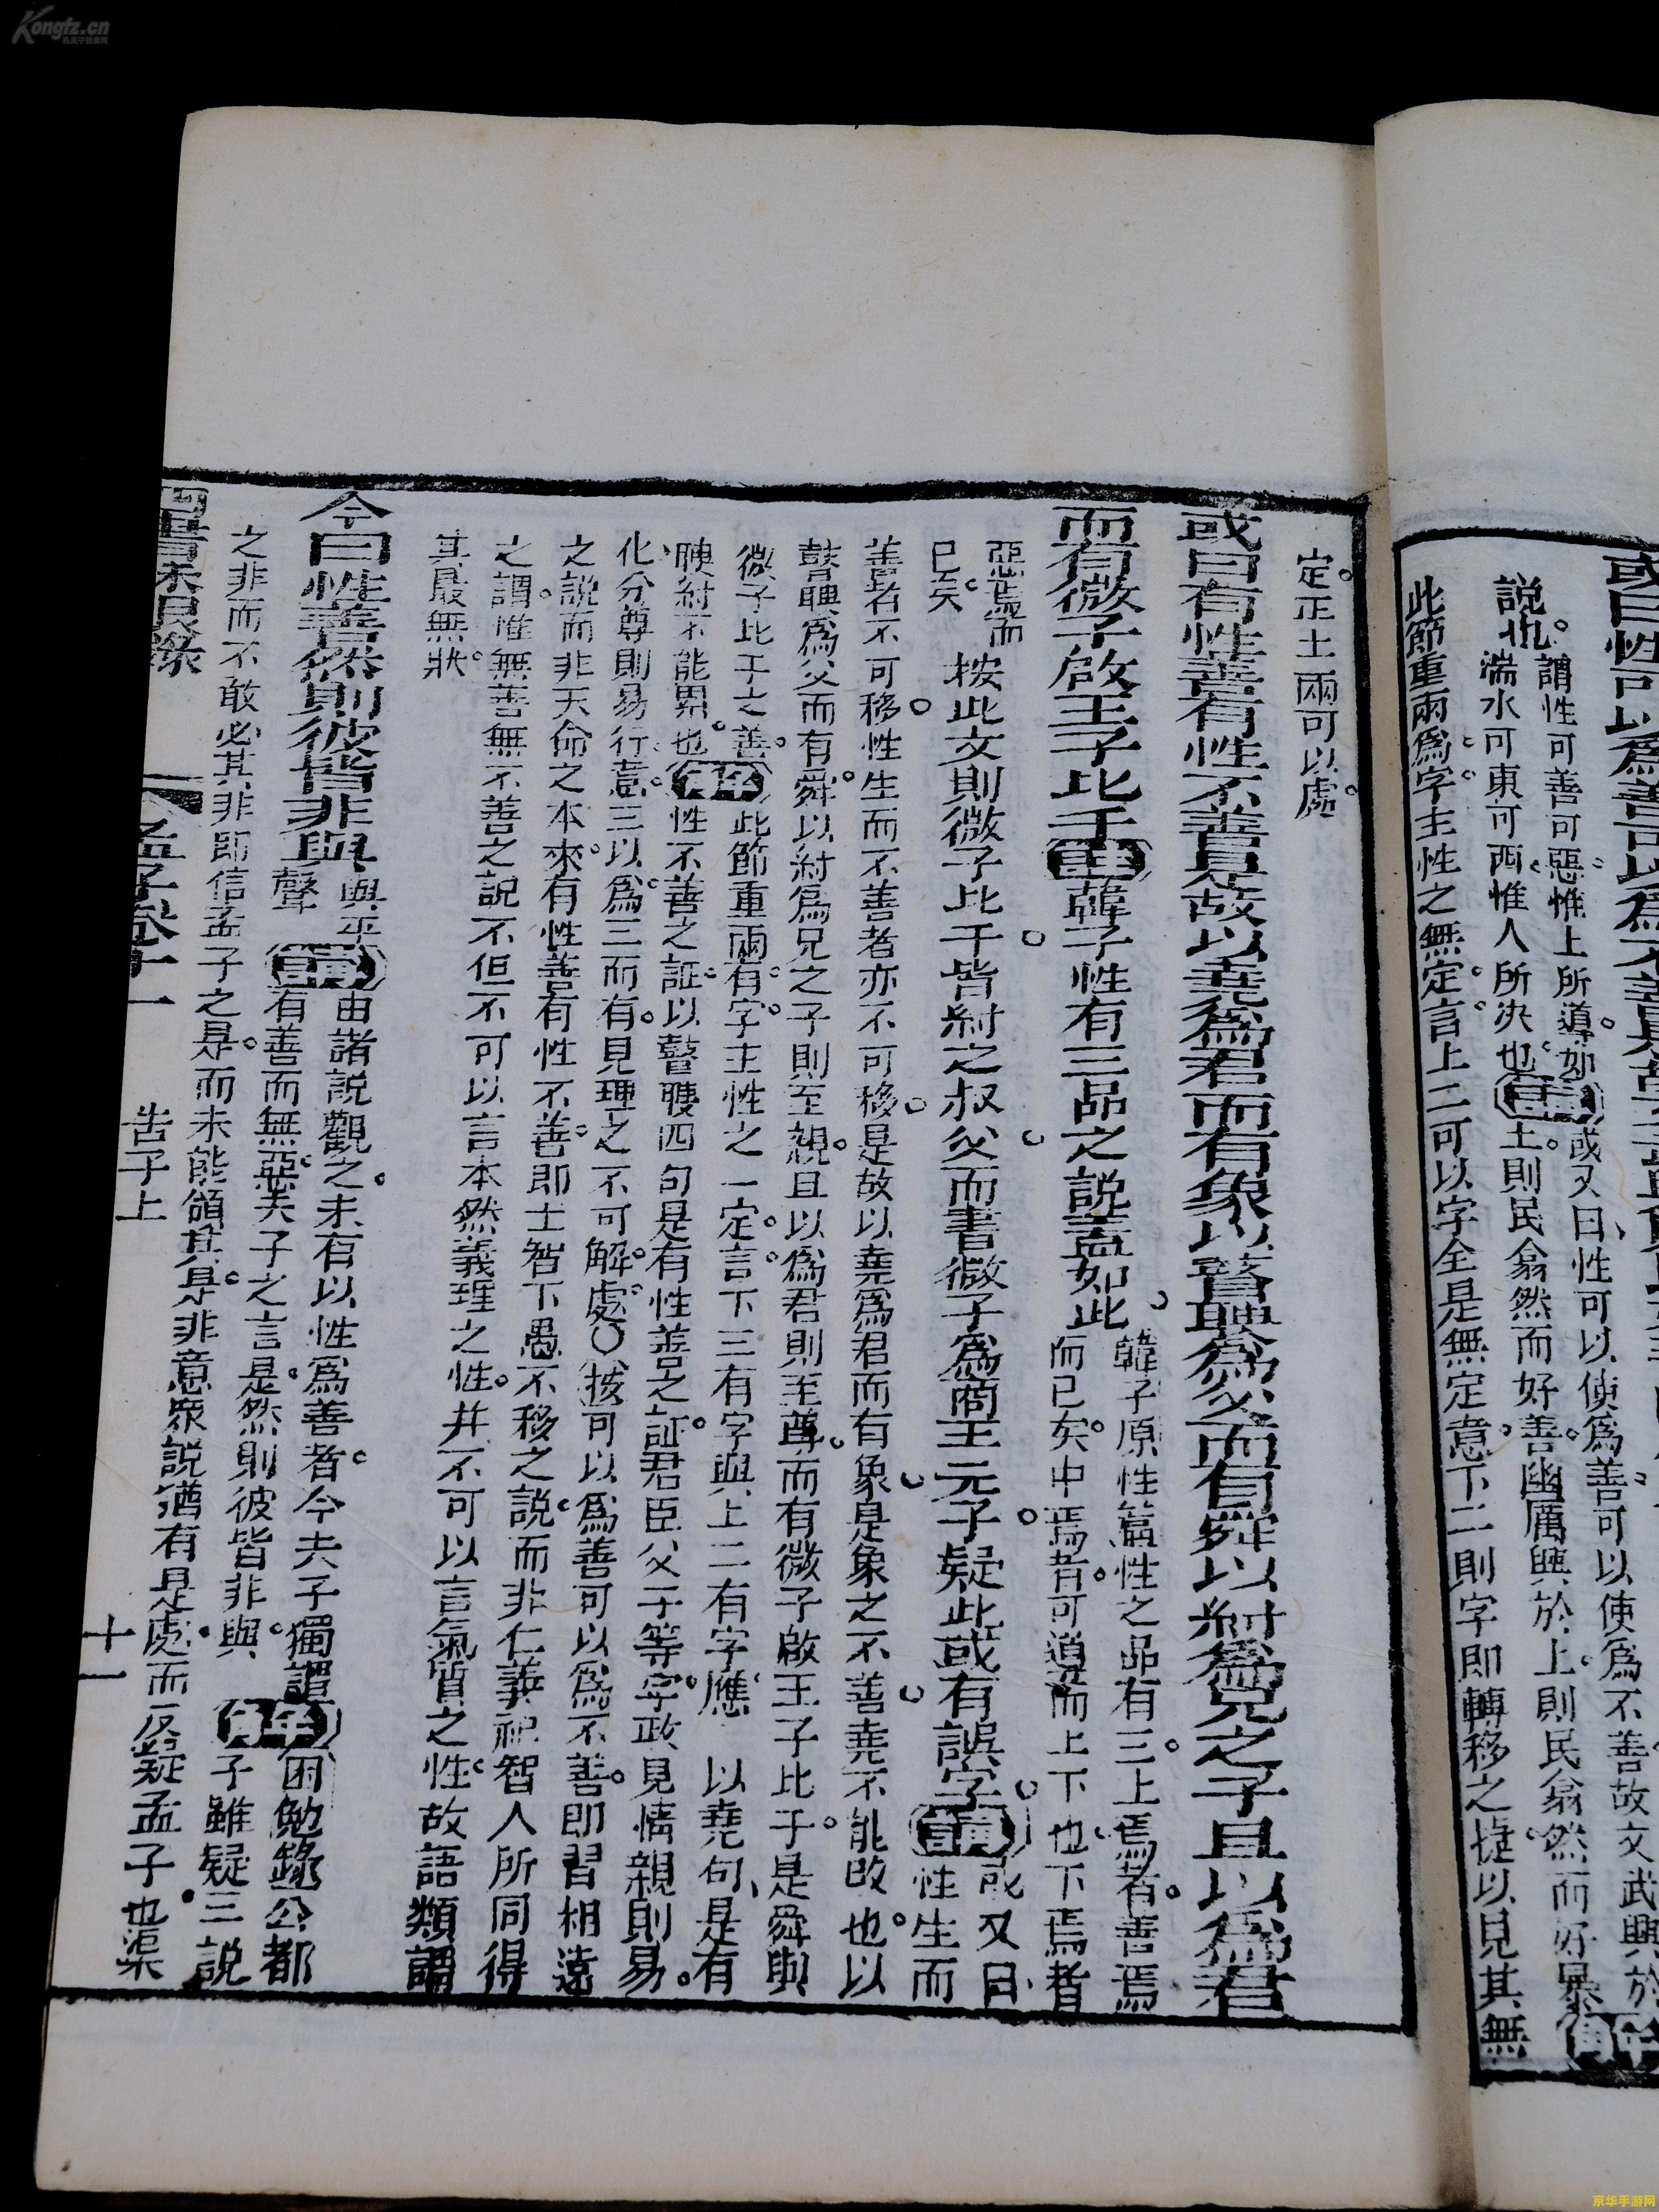 說也。謂性可善可惡惟上所導如
湍水可東可西惟人所決也。
或又曰性可以使爲善可以使爲不善故文武興於
上則民翕然而好善幽厲興於上則民翕然而好暴
此節重兩爲字主性之無定言上二可以字全是無定意下二則字即轉移之捷以見其無
定。正土兩可以處。
或曰有性善有性不善是故以堯爲君而有象以瞽瞍爲父而有舜以紂爲兄之子且以爲君
而有微子啟王子比干註韓子性有三品之說蓋如此
韓子原性篇性之品有三上焉者善焉
而已矣中焉者可道而上下也下焉者
惡焉而
已矣
按此文則微子比干皆紂之叔父而書微子爲商王元子疑此或有誤字講
或又曰
性生而
善者不可移性生而不善者亦不可移是故以堯爲君而有象是象之不善堯不能改也以
瞽瞍爲父而有舜以紂爲兄之子則至親且以爲君則至尊而有微子啟王子比干是舜與
微子比干之善
瞍紂不能累也
解
此節重兩有字主性之一定言下三有字與上二有字應 以堯句是有
性不善之証以瞽瞍四句是有性善之証君臣父子等字政見情親則易
化分尊則易行意三以爲三而有見理之不可解處○按可以爲善可以爲不善即習相遠
之說而非天命之本來有性善有性不善即上智下愚不移之說而非仁義禮智人所同得
之謂惟無善無不善之說不但不可以言本然義理之性并不可以言氣質之性故語類謂
其最無狀
今曰性善然則彼皆非與
與平
聲
講
由諸說觀之未有以性爲善者今夫子獨謂
有善而無惡夫子之言是然則彼皆非與
解
困勉錄公都
子雖疑三說
之非而不敢必其非即信孟子之是而未能領其是非意衆說猶有是處而反疑孟子也
孟子卷十一
告子上
十一
Kongfz.cn
京华手游网